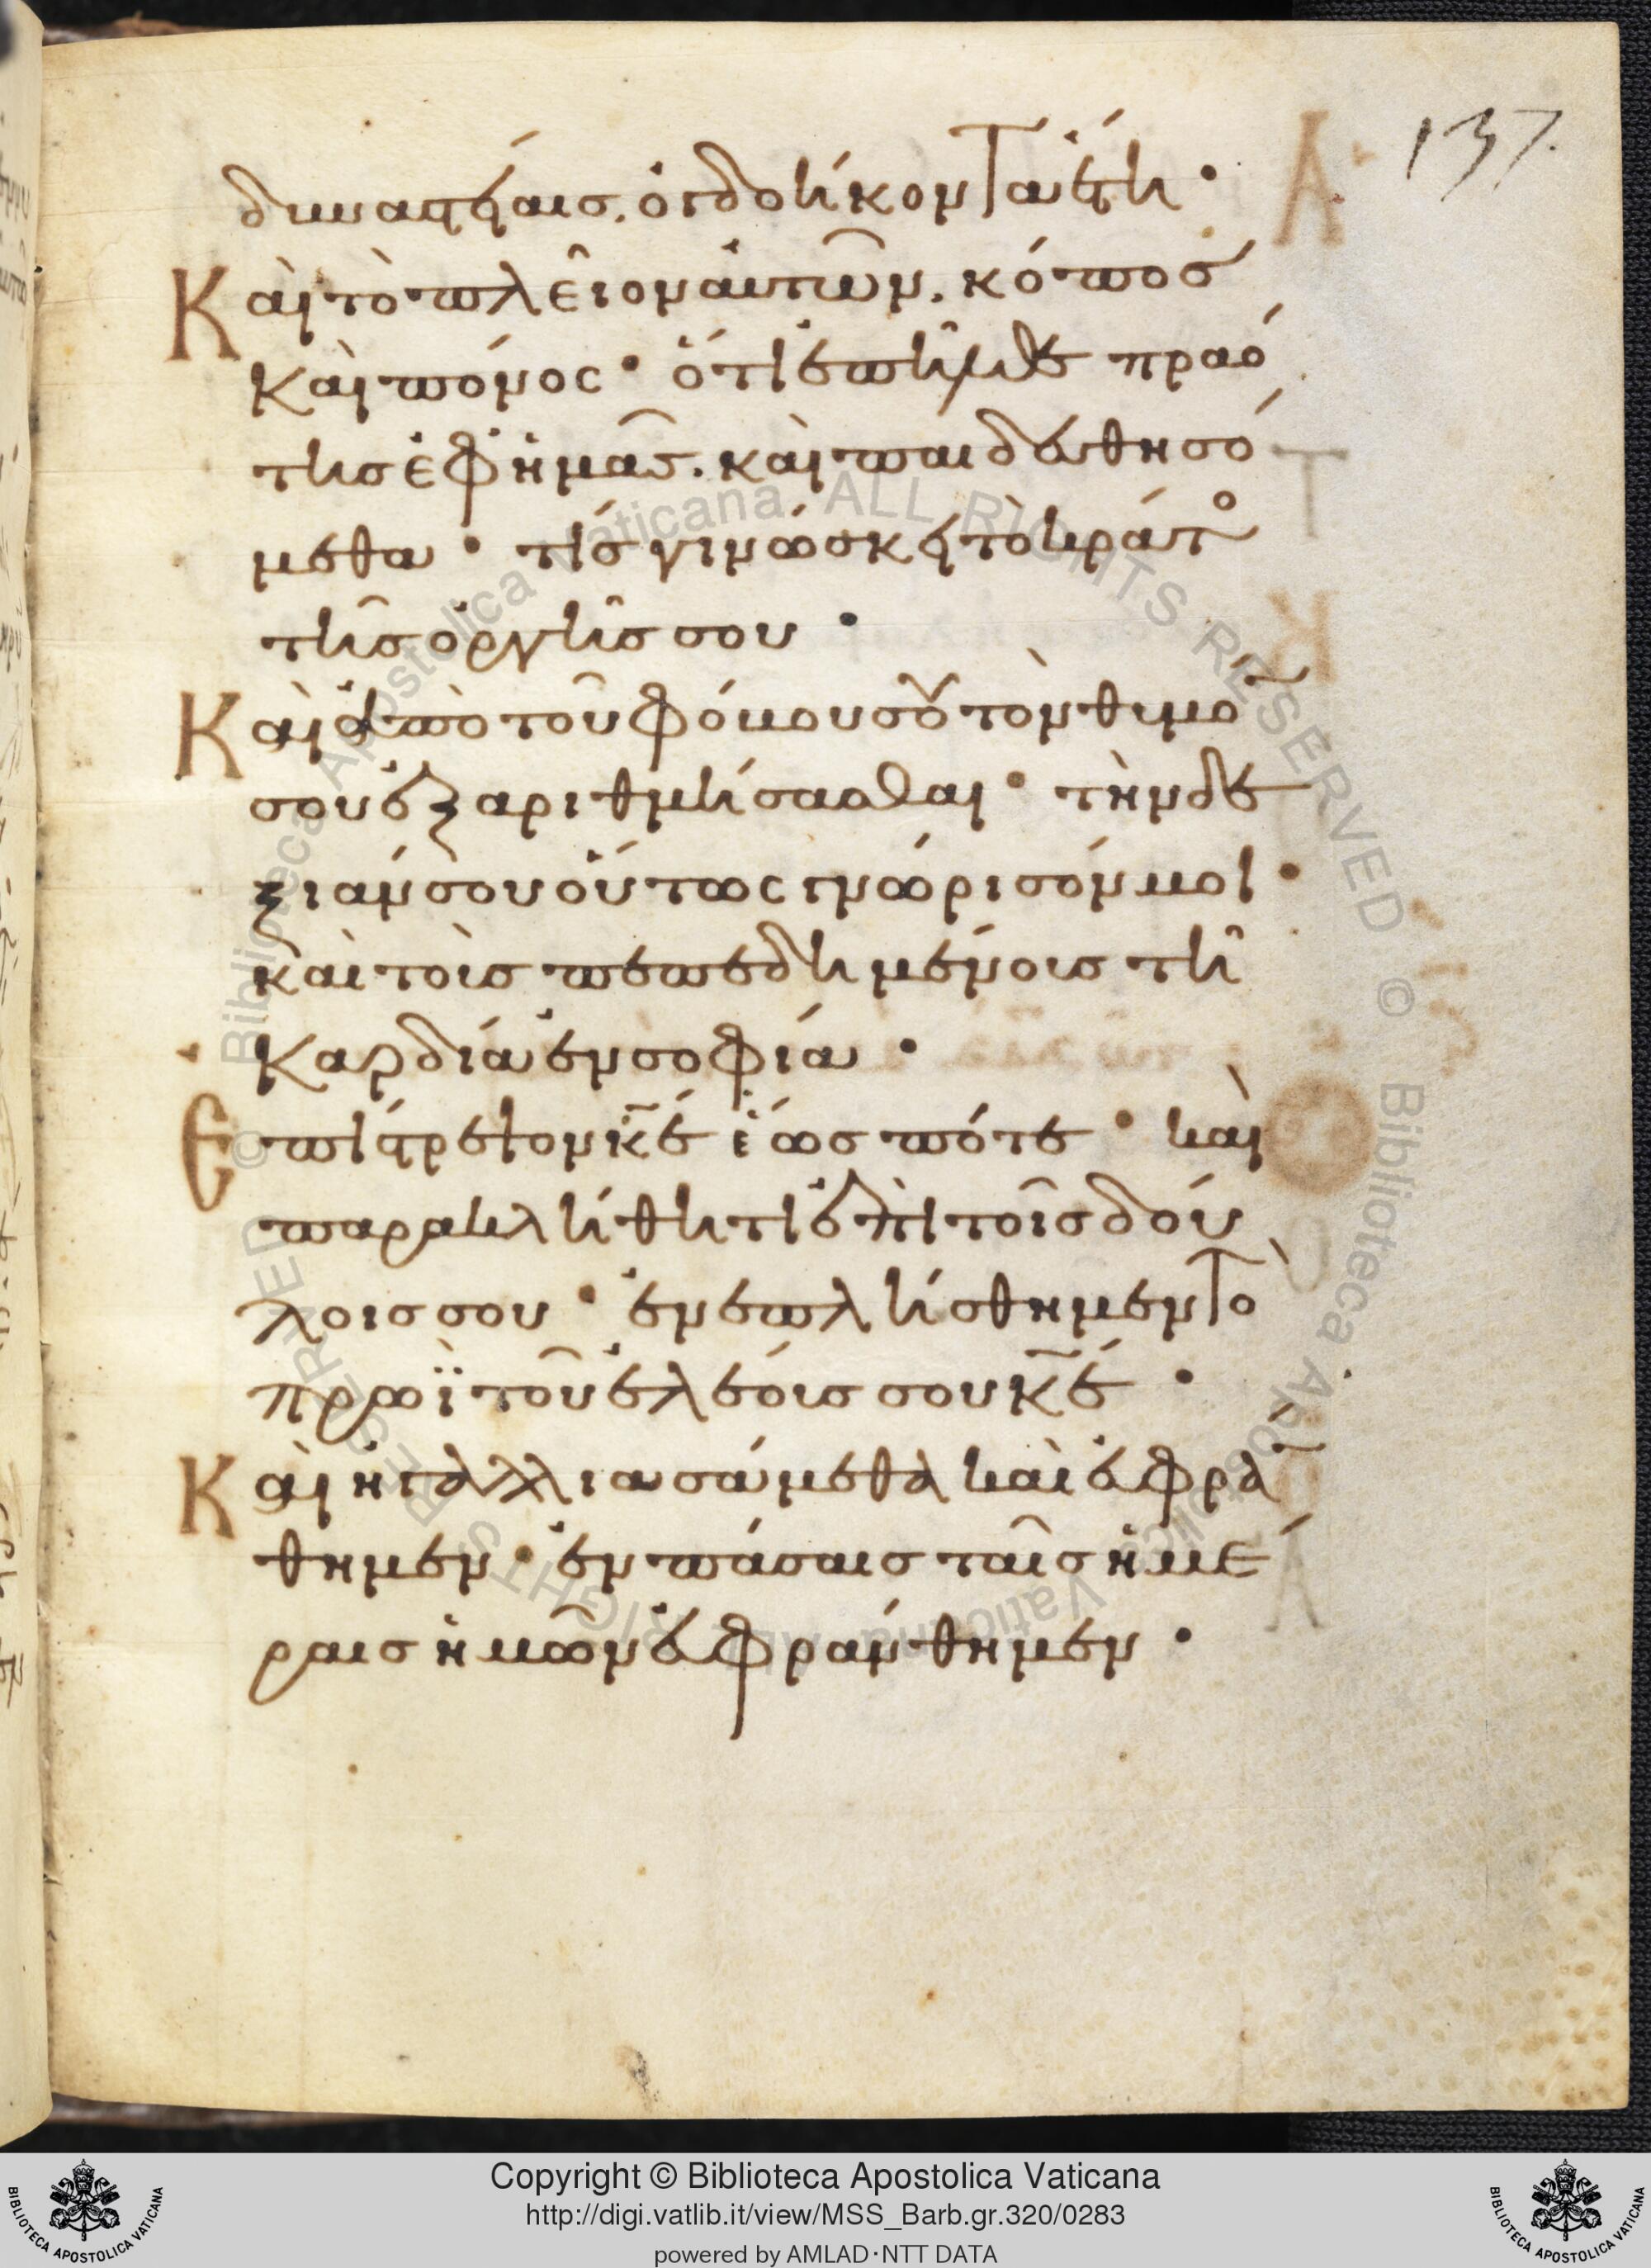 137.
δυναστείαις. ὀγδοήκοντα ἔτη ·
Καὶ τὸ πλεῖον αὐτῶν. κόπος
καὶ πόνος · ὅτι ἐπῆλθε πραό
της ἐφ ἡμᾶς. καὶ παιδευθησό
μεθα · τίς γινώσκει τὸ κράτο
τῆς ὀργῆς σου ·
Καὶ ἀπὸ τοῦ φόβου σου τὸν θυμο̄
σου ἐξαριθμήσασθαι · τὴν δε
ξιάν σου οὕτως γνώρισόν μοι ·
καὶ τοὺς πεπεδημένους τῆ
καρδία ἐν σοφία ·
Επίστρεψον κ̅ε̅ ἕως πότε · καὶ
παρακλήθητι ἐπὶ τοῖς δού
λοις σου · ἐνεπλήσθημεν τὸ
πρωῒ τοῦ ἐλέους σου κ̅ε̅ ·
Καὶ ἠγαλλιασάμεθα καὶ εὐφρά̄
θημεν · ἐν πάσαις ταῖς ἡμέ
ραις ἡμῶν εὐφράνθημεν ·
© Biblioteca Apostolica Vaticana. ALL RIGHTS RESERVED
© Biblioteca Apostolica Vaticana. ALL RIGHTS RESERVED
Copyright © Biblioteca Apostolica Vaticana
http://digi.vatlib.it/view/MSS_Barb.gr.320/0283
powered by AMLAD·NTT DATA
BIBLIOTECA APOSTOLICA VATICANA
BIBLIOTECA APOSTOLICA VATICANA